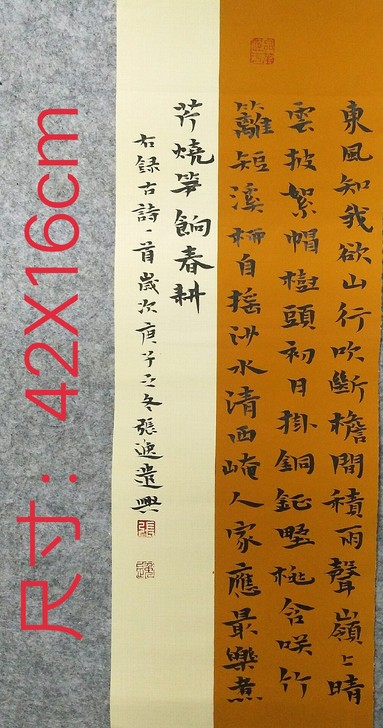 東風知我欲山行吹斷檐間積雨聲嶺上晴
雲披絮帽樹頭初日掛銅鉦墅桃含咲竹
籬短溪柳自搖沙水清西崦人家應最樂煮
芹燒筍餉春耕
右録古詩一首歲次庚子之冬張逸遣興
張
尺寸：42X16cm